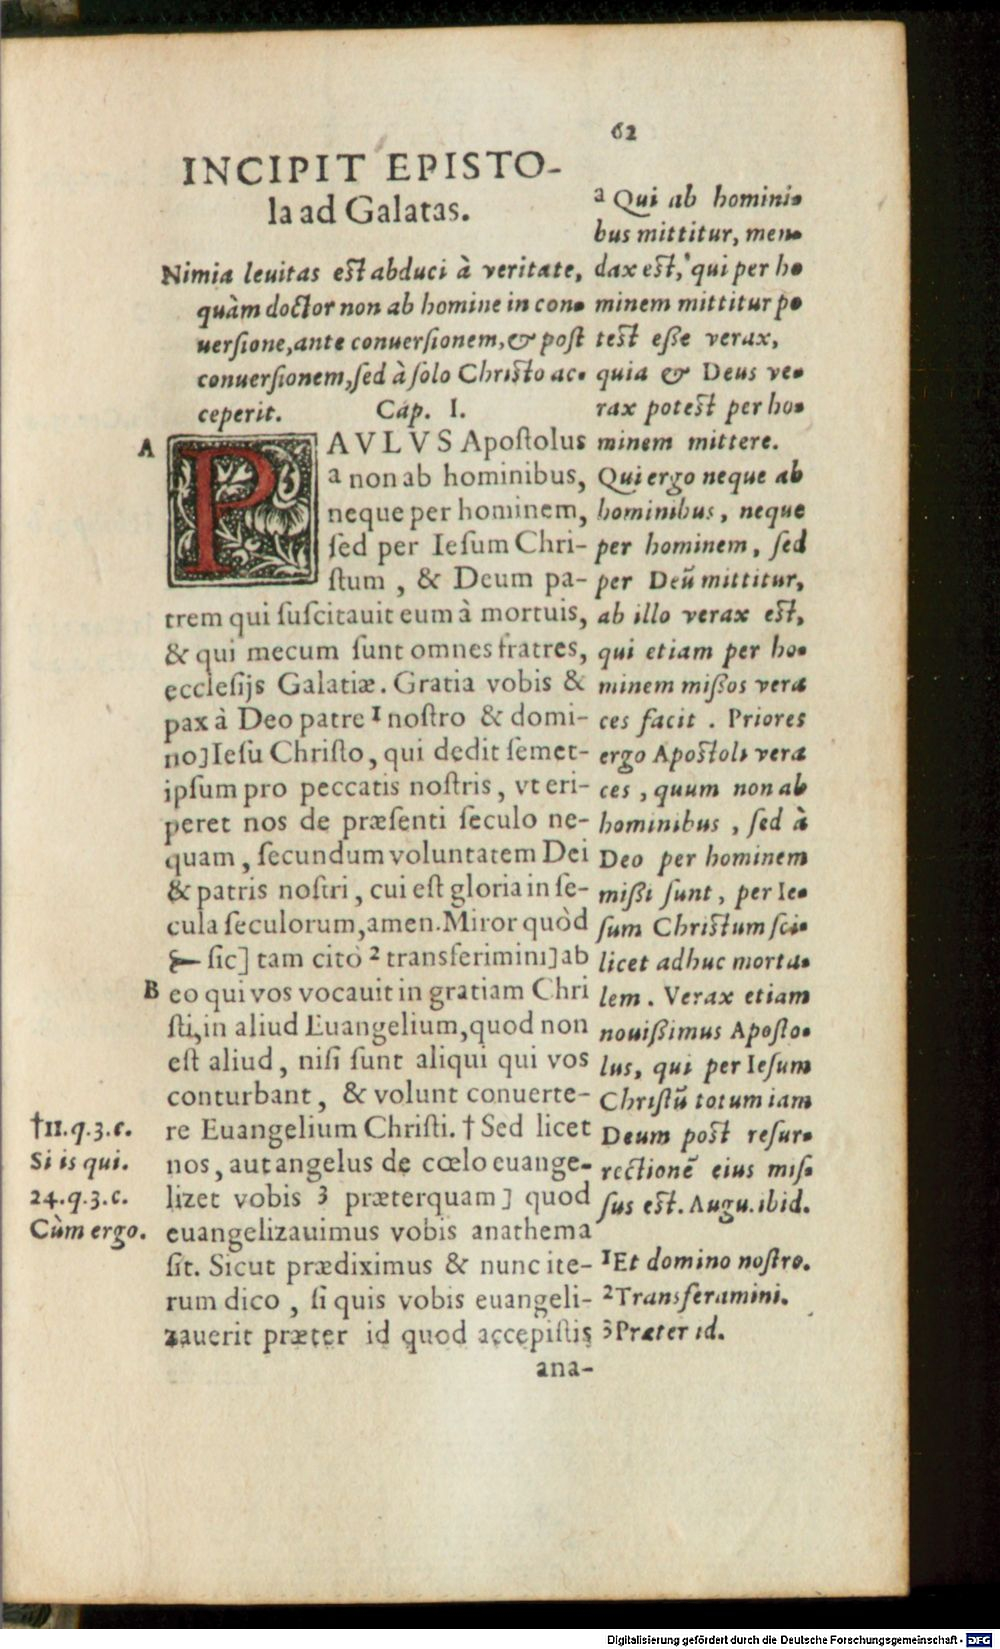 62
INCIPIT EPISTO-
la ad Galatas.
Nimia leuitas est abduci à veritate,
quàm doctor non ab homine in con-
uersione, ante conuersionem, & post
conuersionem, sed à solo Christo ac-
ceperit. Cap. I.
A
PAVLVS Apostolus
a non ab hominibus,
neque per hominem,
sed per Iesum Chri-
stum, & Deum pa-
trem qui suscitauit eum à mortuis,
& qui mecum sunt omnes fratres,
ecclesijs Galatiæ. Gratia vobis &
pax à Deo patre 1 nostro & domi-
no] Iesu Christo, qui dedit semet-
ipsum pro peccatis nostris, vt eri-
peret nos de præsenti seculo ne-
quam, secundum voluntatem Dei
& patris nostri, cui est gloria in se-
cula seculorum, amen. Miror quòd
sic] tam citò 2 transferimini] ab
B eo qui vos vocauit in gratiam Chri
sti, in aliud Euangelium, quod non
est aliud, nisi sunt aliqui qui vos
conturbant, & volunt conuerte-
re Euangelium Christi. † Sed licet
nos, aut angelus de cœlo euange-
lizet vobis 3 præterquam] quod
euangelizauimus vobis anathema
sit. Sicut prædiximus & nunc ite-
rum dico, si quis vobis euangeli-
zauerit præter id quod accepistis
ana-
†11.q.3.c.
Si is qui.
24.q.3.c.
Cùm ergo.
a Qui ab homini-
bus mittitur, men-
dax est, qui per ho
minem mittitur po
test esse verax,
quia & Deus ve-
rax potest per ho-
minem mittere.
Qui ergo neque ab
hominibus, neque
per hominem, sed
per Deū mittitur,
ab illo verax est,
qui etiam per ho-
minem missos vera
ces facit. Priores
ergo Apostoli vera
ces, quum non ab
hominibus, sed à
Deo per hominem
missi sunt, per Ie-
sum Christum sci-
licet adhuc morta-
lem. Verax etiam
nouissimus Aposto-
lus, qui per Iesum
Christū totum iam
Deum post resur-
rectionē eius mis-
sus est. Augu. ibid.
1 Et domino nostro.
2 Transferamini.
3 Præter id.
Digitalisierung gefördert durch die Deutsche Forschungsgemeinschaft - DFG